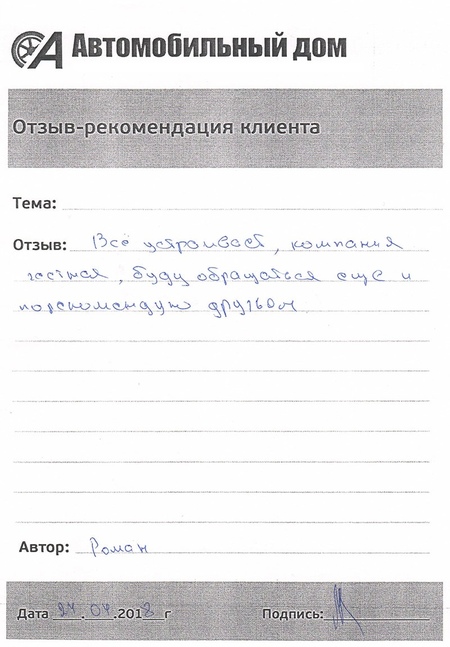 Автомобильный дом
Отзыв-рекомендация клиента
Тема:
Отзыв: Всё устраивает, компания
честная, буду обращаться еще и
порекомендую друзьям
Автор: Роман
Дата 24.04.2018 г Подпись: